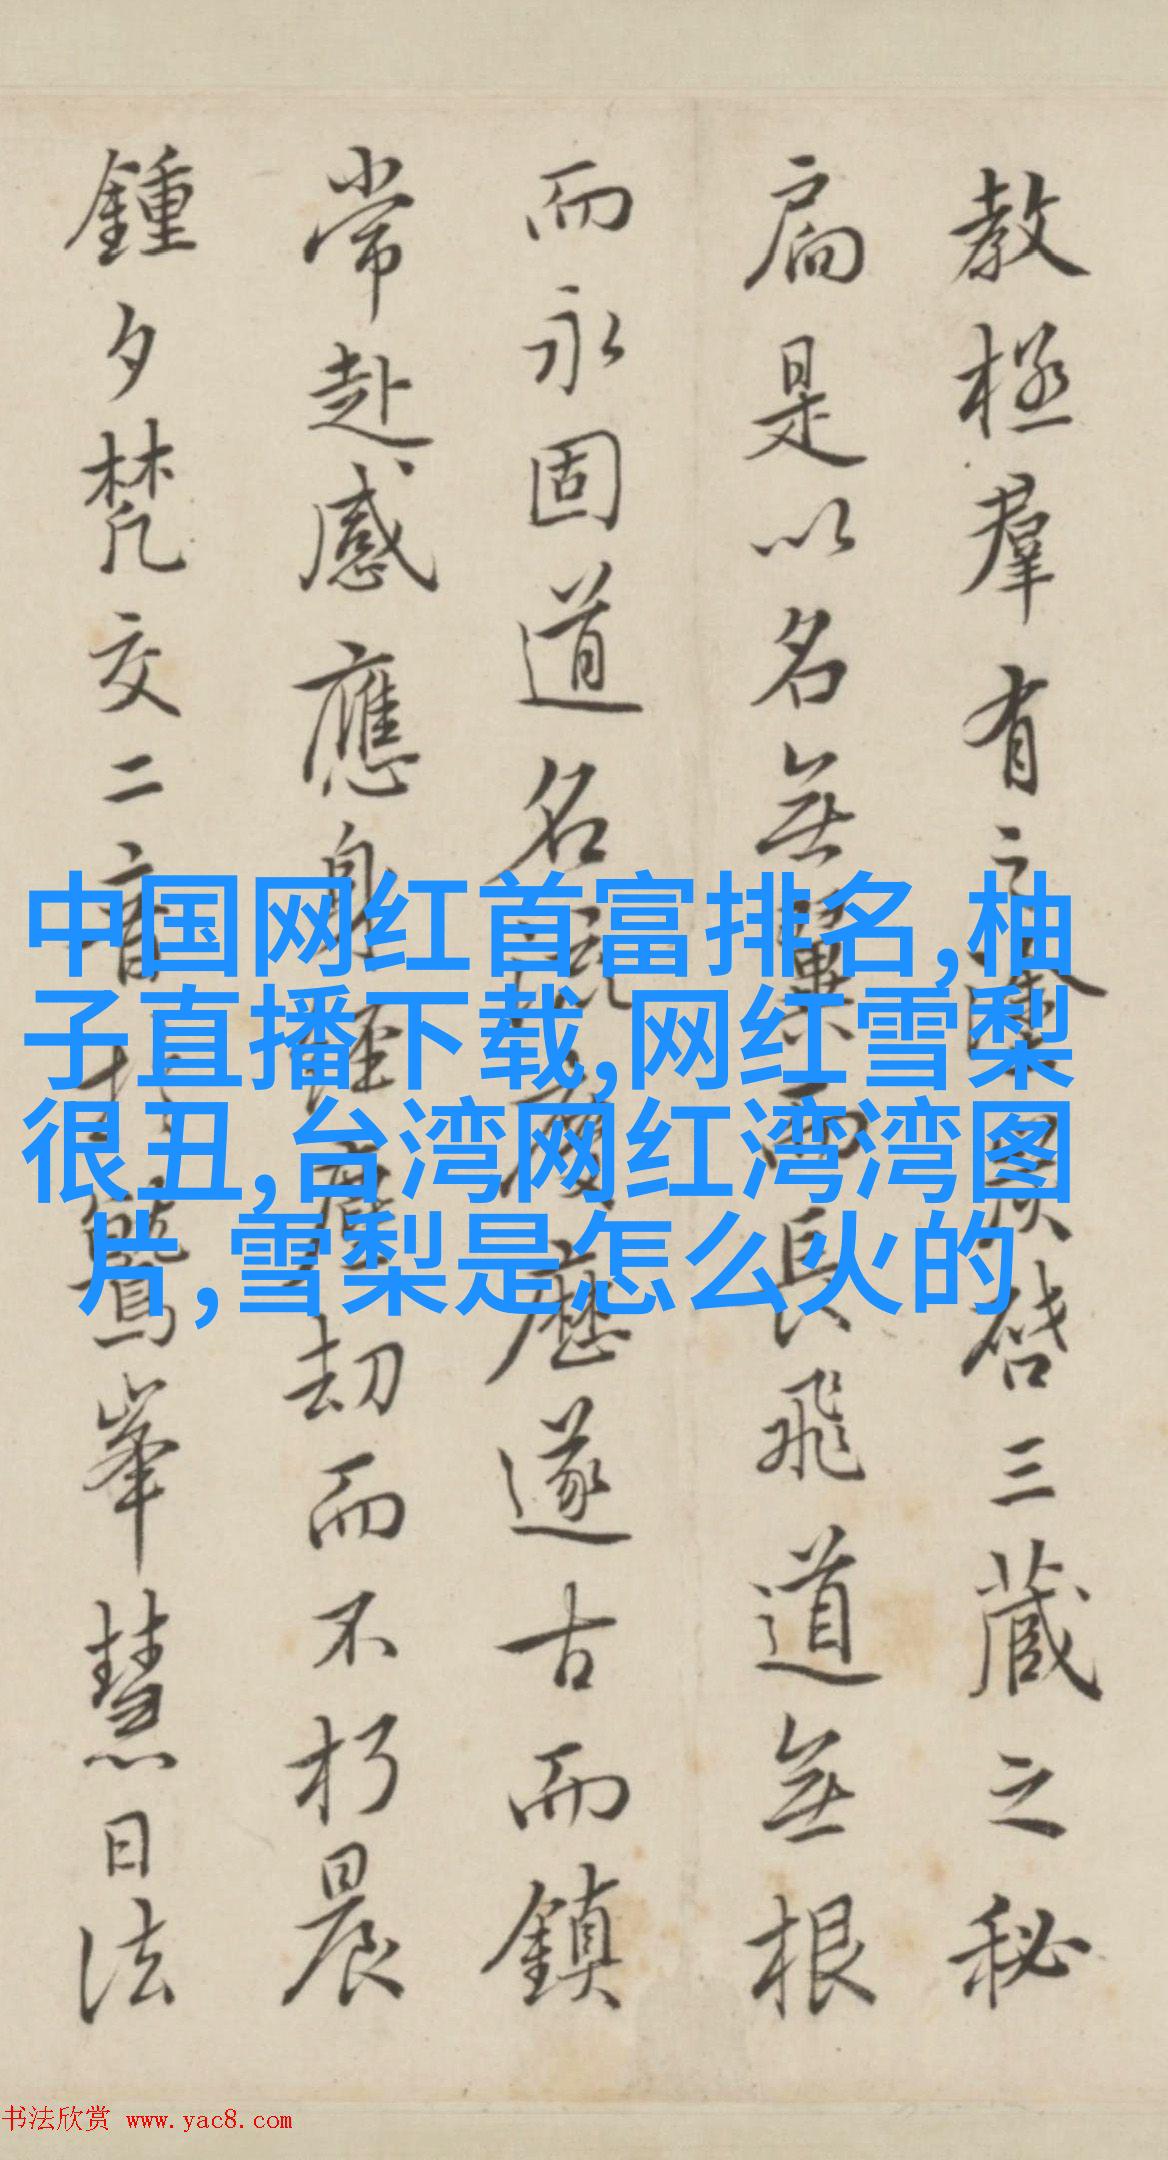 教極羣有之啓三藏之秘
扃是以名無翼而長飛道無根
而永固道名流慶歷遂古而鎮
常赴感應身經塵劫而不朽晨
鍾夕梵交二音於鷲峯慧日法
中国网红首富排名,柚
子直播下载,网红雪梨
很丑,台湾网红湾湾图
片,雪梨是怎么火的
书法欣赏 www.yac8.com